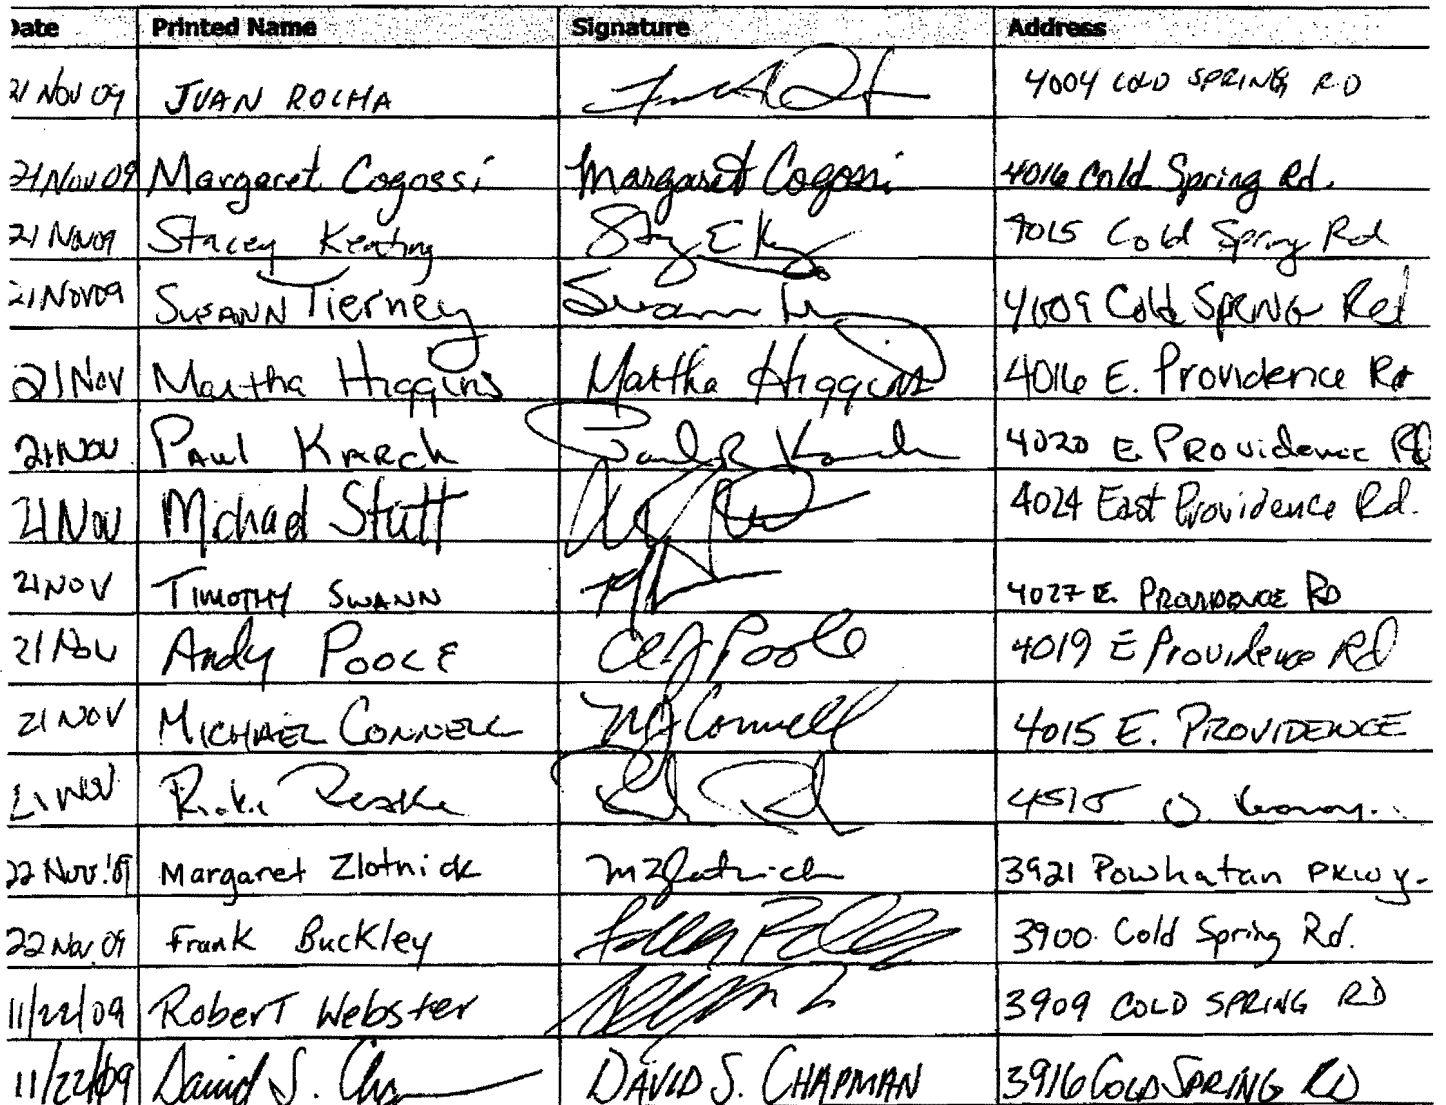 Date Printed Name Signature Address
21 Nov 09 JUAN ROCHA 4004 COLD SPRING RD
21 Nov 09 Margaret Cogossi Margaret Cogossi 4016 Cold Spring Rd.
21 Nov 09 Stacey Keating 4015 Cold Spring Rd
21 Nov 09 SUSANN Tierney Susann 4009 Cold SPRING Rd
21 Nov Martha Higgins Martha Higgins 4016 E. Providence Rd
21 Nov PAUL KARCH Paul R Karch 4020 E. PROvidence RD
21 Nov Michael Stutt 4024 East Providence Rd.
21 NOV TIMOTHY SWANN 4027 E. PROVIDENCE RD
21 Nov Andy POOLE Poole 4019 E Providence Rd
21 NOV MICHAEL CONNELL MJ Connell 4015 E. PROVIDENCE
21 Nov 4515
22 Nov '09 Margaret Zlotnick M Zlotnick 3921 Powhatan PKWY.
22 Nov 09 Frank Buckley 3900 Cold Spring Rd.
11/22/09 Robert Webster 3909 COLD SPRING RD
11/22/09 David S. DAVID S. CHAPMAN 3916 COLD SPRING RD